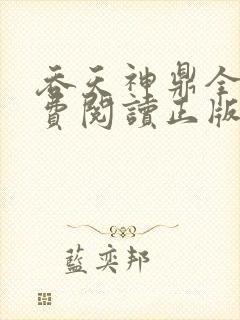 吞天神鼎全
費閱讀正版
藍奕邦